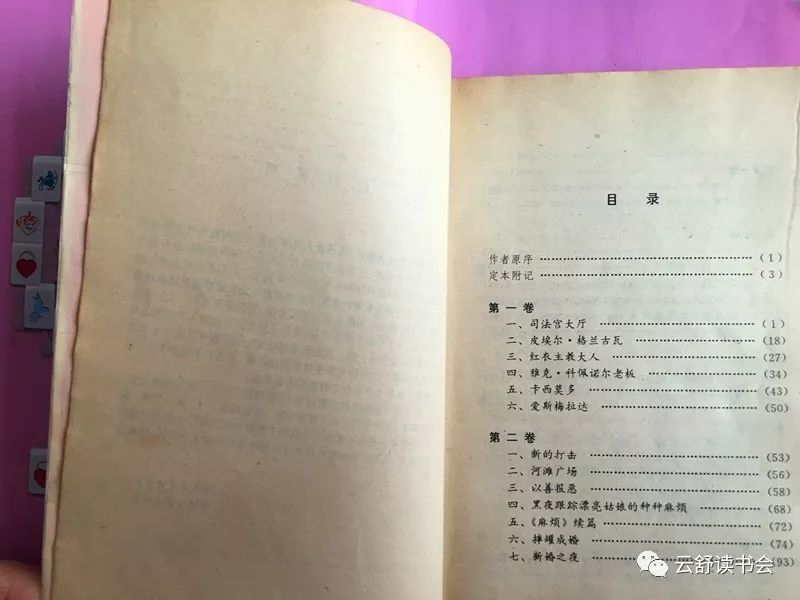 目 录
作者原序 ………………………………………… (1)
定本附记 ………………………………………… (3)
第一卷
一、司法宫大厅 ………………………………… (1)
二、皮埃尔·格兰古瓦 ………………………… (18)
三、红衣主教大人 ……………………………… (27)
四、雅克·科佩诺尔老板 ……………………… (34)
五、卡西莫多 …………………………………… (43)
六、爱斯梅拉达 ………………………………… (50)
第二卷
一、新的打击 …………………………………… (53)
二、河滩广场 …………………………………… (56)
三、以善报恶 …………………………………… (58)
四、黑夜跟踪漂亮姑娘的种种麻烦 …………… (68)
五、《麻烦》续篇 ……………………………… (72)
六、摔罐成婚 …………………………………… (74)
七、新婚之夜 …………………………………… (93)
云舒读书会